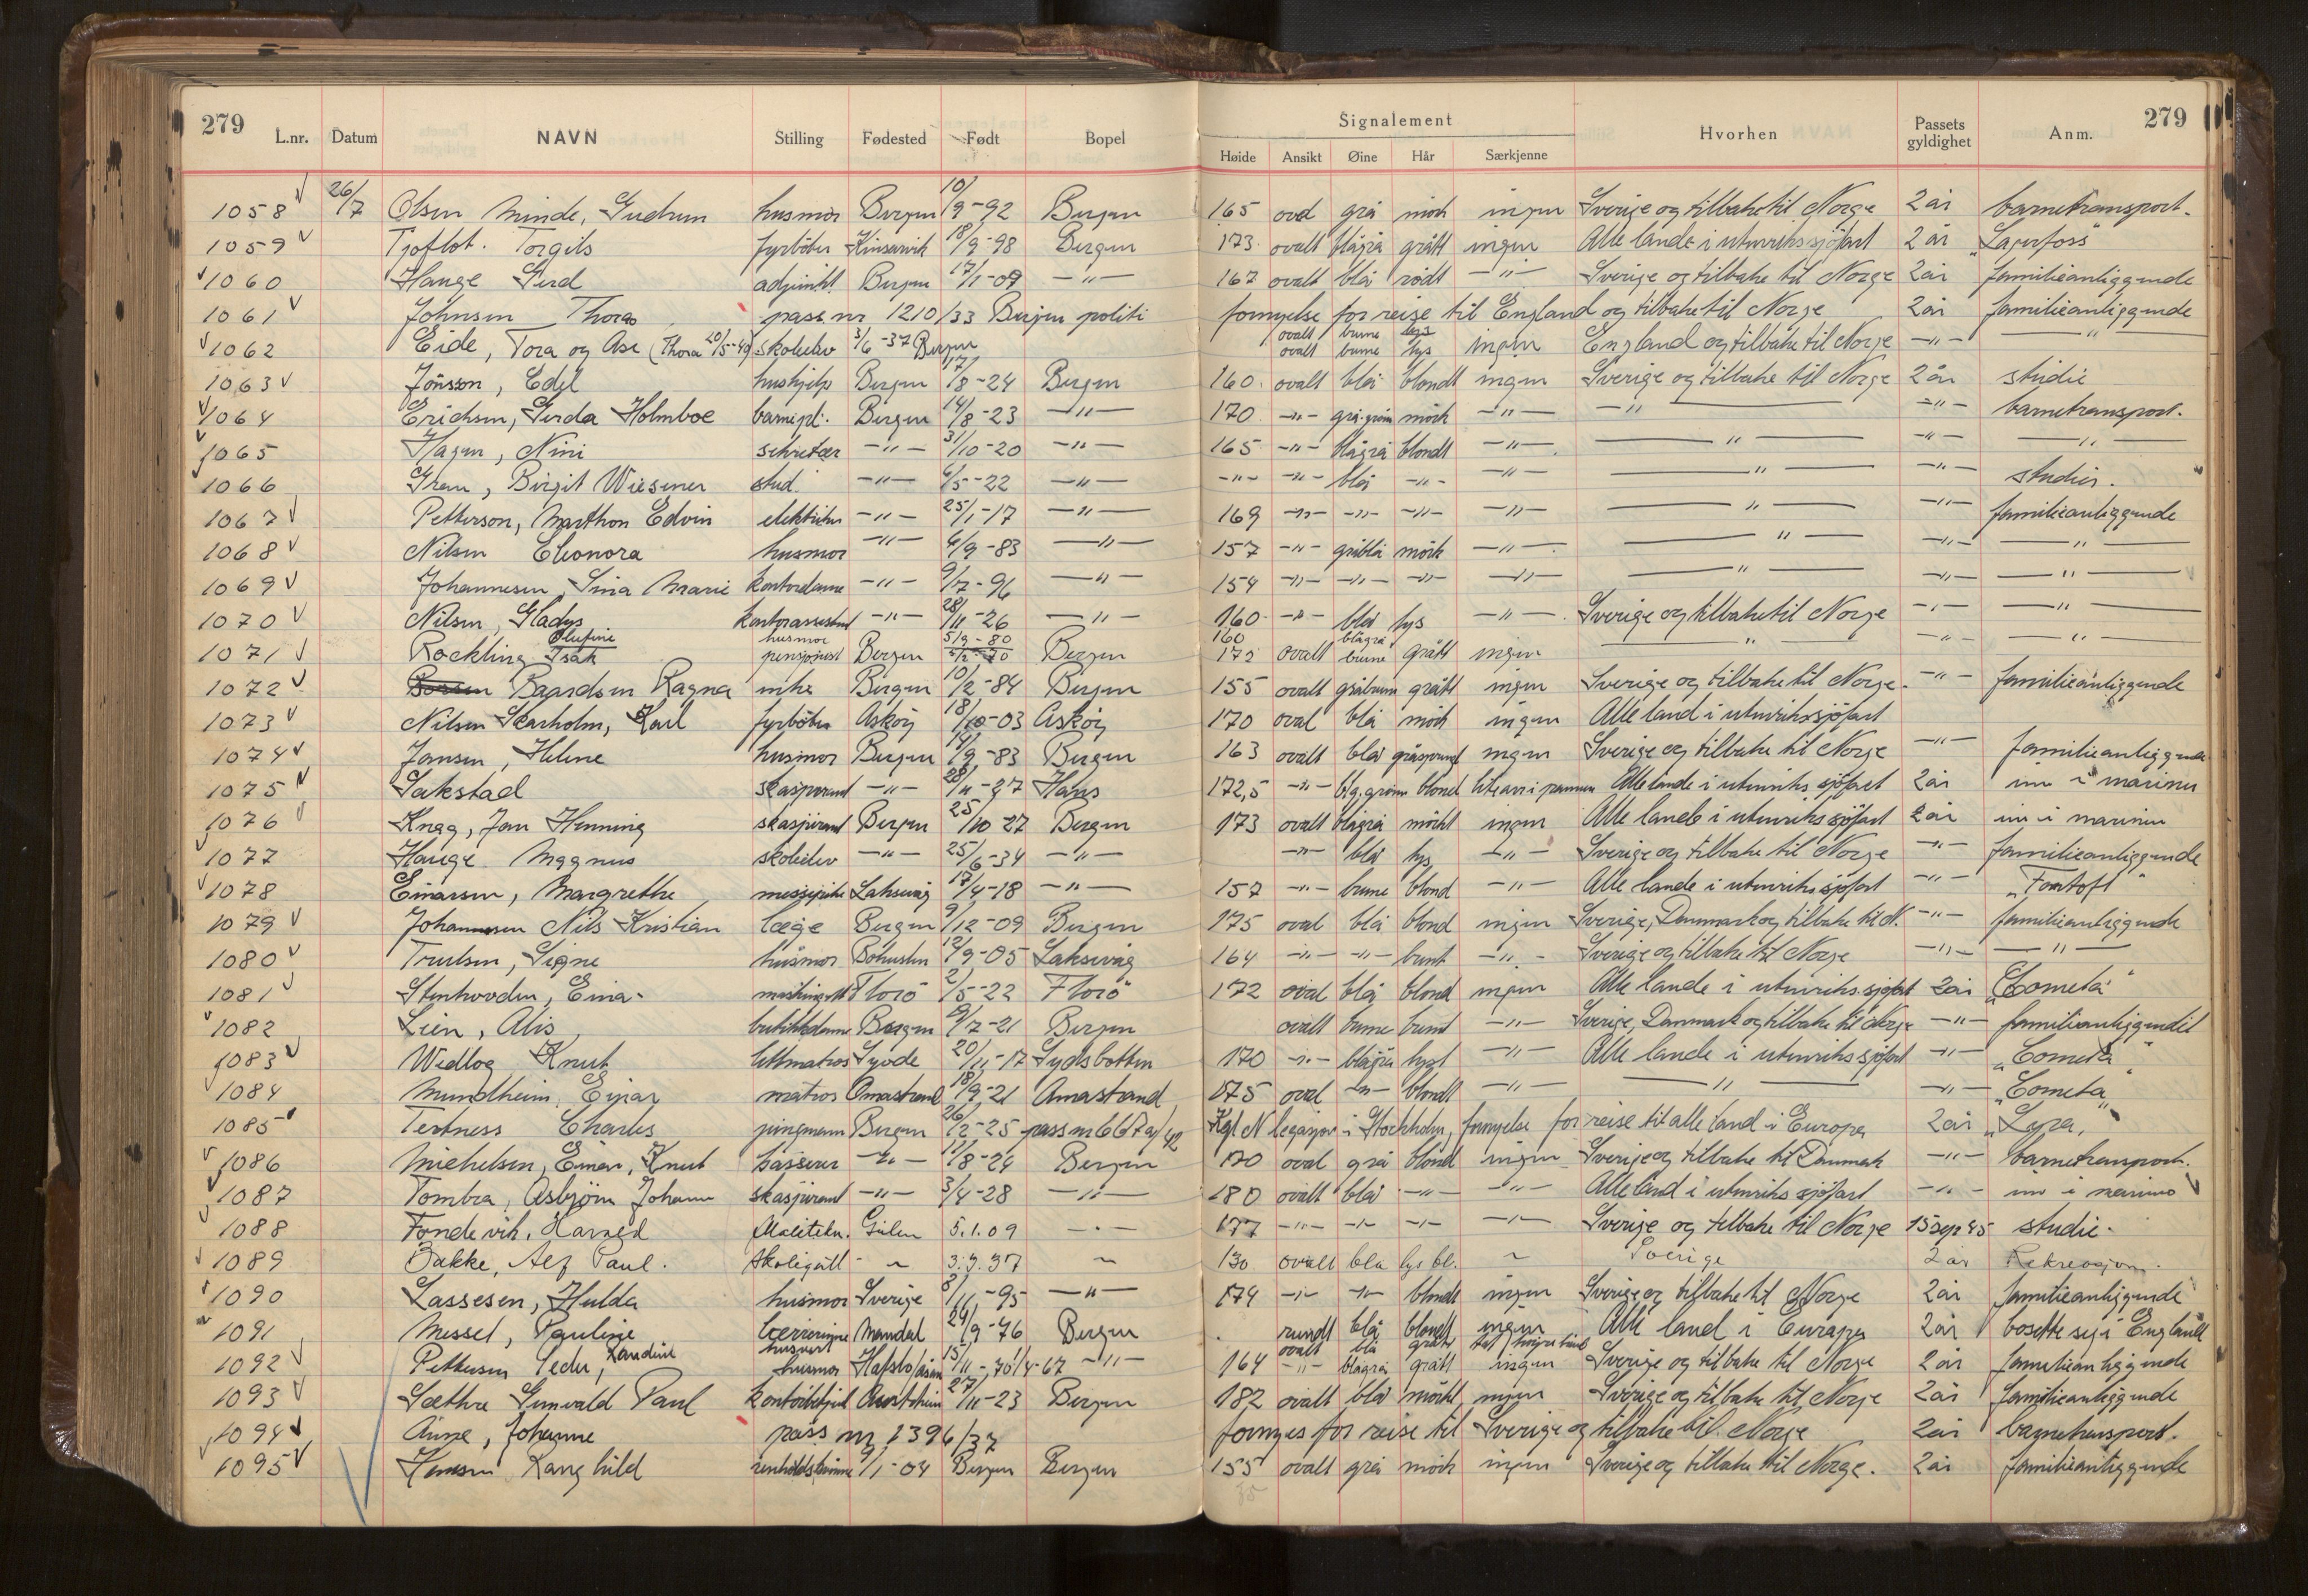 279 279
Signalement
L.nr. Datum NAVN Stilling Fødested Født Bopel Høide Ansikt Øine Hår Særkjenne Hvorhen Passets gyldighet Anm.
1058 26/7 Olsen Minde, Gudrun husmor Bergen 10/9-92 Bergen 165 oval grå mörk ingen Sverige og tilbake til Norge 2 år barnetransport.
1059 Tjoflot. Torgils fyrböter Kinsarvik 18/9-98 Bergen 173 ovalt blågrå grått ingen Alle lande i utenriks sjöfart 2 år "Lagerfoss"
1060 Hauge Gerd adjunkt Bergen 17/1-07 -"- 167 ovalt blå rödt -"- Sverige og tilbake til Norge 2 år familieanliggende
1061 Johnsen Thora pass nr 1210/33 Bergen politi fornyelse for reise til England og tilbake til Norge 2 år familieanliggende
1062 Eide, Tora og Åse (Thora 20/5-40) skoleelev 3/6-37 Bergen ovalt brune lys ovalt brune lys ingen England og tilbake til Norge -"- -"-
1063 Jönsson, Edel hushjelp Bergen 17/8-24 Bergen 160 ovalt blå blondt ingen Sverige og tilbake til Norge 2 år studie
1064 Erichsen, Gerda Holmboe barnepl. Bergen 14/8-23 -"- 170 -"- grå.grön mörk -"- -"- -"- barnetransport.
1065 Hagen, Nini sekretær -"- 31/10-20 -"- 165 -"- blågrå blondt -"- -"- -"- -"-
1066 Gran, Birgit Wiesener stud. -"- 6/5-22 -"- -"- -"- blå -"- -"- -"- -"- studier.
1067 Petterson, Marthon Edvin elektriker -"- 25/1-17 -"- 169 -"- -"- -"- -"- -"- -"- familieanliggende
1068 Nilsen Eleonora husmor -"- 6/9-83 -"- 157 -"- gråblå mörk -"- -"- -"- -"-
1069 Johannesen, Sina Marie kontordame -"- 9/7-96 -"- 154 -"- -"- -"- -"- -"- -"- -"-
1070 Nilsen, Gladys kontorassistent -"- 28/11-26 -"- 160 -"- blå lys -"- Sverige og tilbake til Norge -"- -"-
1071 Rockling Isak Olufine husmor pensjonist Bergen 5/9-80 Bergen 160 172 ovalt blågrå brune grått ingen -"- -"- -"-
1072 Baardsen Ragna Bergen 10/2-84 Bergen 155 ovalt gråbrun grått ingen Sverige og tilbake til Norge. -"- familieanliggende
1073 Nilsen Skarholm, Karl fyrböter Asköy 18/10-03 Asköy 170 oval blå mörk ingen Alle land i utenrikssjöfart
1074 Jansen, Helene husmor Bergen 14/9-83 Bergen 163 ovalt blå gråsprengt ingen Sverige og tilbake til Norge -"- familieanliggende
1075 Sakstad skaspirant -"- 28/11-27 172,5 -"- blond lite arr i pannen Alle lande i utenriks sjöfart 2 år inn i marinen
1076 Knag, Jan Henning skasjirant Bergen 25/10 27 Bergen 173 ovalt blågrå mörkt ingen Alle lande i utenriks sjöfart 2 år inn i marinen
1077 Hauge Magnus skoleelev -"- 25/6-34 -"- -"- blå lys -"- Sverige og tilbake til Norge -"- familieanliggende
1078 Einarsen, Margrethe messepike Laksevåg 17/4-18 -"- 157 -"- brune blond -"- Alle lande i utenrikssjöfart -"- "Tomtoft"
1079 Johannesen Nils Kristian læge Bergen 9/12-09 Bergen 175 oval blå blond ingen Sverige, Danmark og tilbake til N. -"- familieanliggende
1080 Truelsen, Signe husmor Bohuslen 12/9-05 Laksevåg 164 -"- -"- brunt -"- Sverige og tilbake til Norge -"- -"-
1081 Stenhovden, Einar Florö 2/5-22 Florö 172 oval blå blond ingen Alle lande i utenriks.sjöfart 2 år "Cometa"
1082 Lien, Alis butikkdame Bergen 9/7-21 Bergen ovalt brune brunt -"- Sverige, Danmark og tilbake til Norge -"- familieanliggendet
1083 Wedlog Knut lettmatros 20/11-17 170 -"- blågrå lyst -"- Alle lande i utenriks sjöfart -"- "Cometa"
1084 Mundheim, Einar matros Omastrand 18/9-21 Omastrand 175 oval -"- blondt -"- -"- -"- "Cometa"
1085 Tertness Charles jungmann Bergen 26/2-25 pass nr 667a/42 Kgl N legasjon i Stockholm, fornyelse for reise til alle land i Europa 2 år "Lyra"
1086 Michelsen, Einar, Knut kasserer -"- 11/8-24 Bergen 170 oval grå blond ingen Sverige og tilbake til Danmark -"- barnetransport.
1087 Tombra, Asbjörn Johann skasjirant -"- 3/4-28 -"- 180 ovalt blå -"- -"- Alle land i utenriks sjöfart -"- inn i marinen
1088 Fondevik, Harald Gulen 5.1.09 -"- 177 -"- -"- -"- -"- Sverige og tilbake til Norge 15 sep 45 studie.
1089 Bakke, Alf Paul. Skolegutt - 3.9.37 130 ovalt blå lys bl. Sverige 2 år Rekreasjon.
1090 Lassesen, Hulda husmor Sverige 8/11-95 -"- 174 -"- -"- blondt ingen Sverige og tilbake til Norge 2 år familieanliggende
1091 Messel, Pauline lærerinne Mandal 24/9-76 Bergen rundt blå blondt ingen Alle land i Europa 2 år bosette seg i England
1092 Pettersen Peder, Landine husvert husmor Hafslo/Åsane 15/11-70 1/4-67 -"- 164 ovalt -"- blå blågrå grått grått ingen Sverige og tilbake til Norge 2 år familieanliggende
1093 Sæthre Gunvald Paul kontorbetjent Austrheim 27/11-23 Bergen 182 ovalt blå mörkt ingen Sverige og tilbake til Norge 2 år familieanliggende
1094 Anne, Johanne pass nr 1396/37 fornyes for reise til Sverige og tilbake til Norge 2 år barnetransport.
1095 Hansen Ranghild 7/1-04 Bergen Bergen 155 ovalt grå mörk ingen Sverige og tilbake til Norge. 2 år familieanliggende